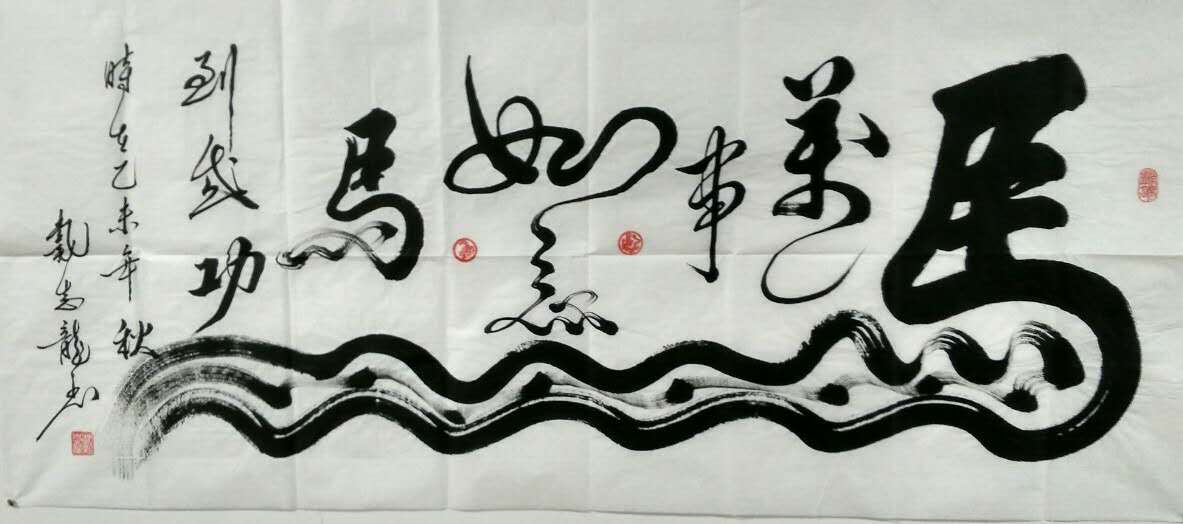 馬
萬
事
如意
馬
到成功
時在乙未年秋
志龍书